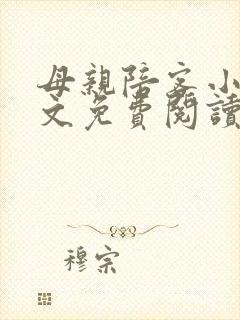 母親陪客小
文免費閱讀
穆宗